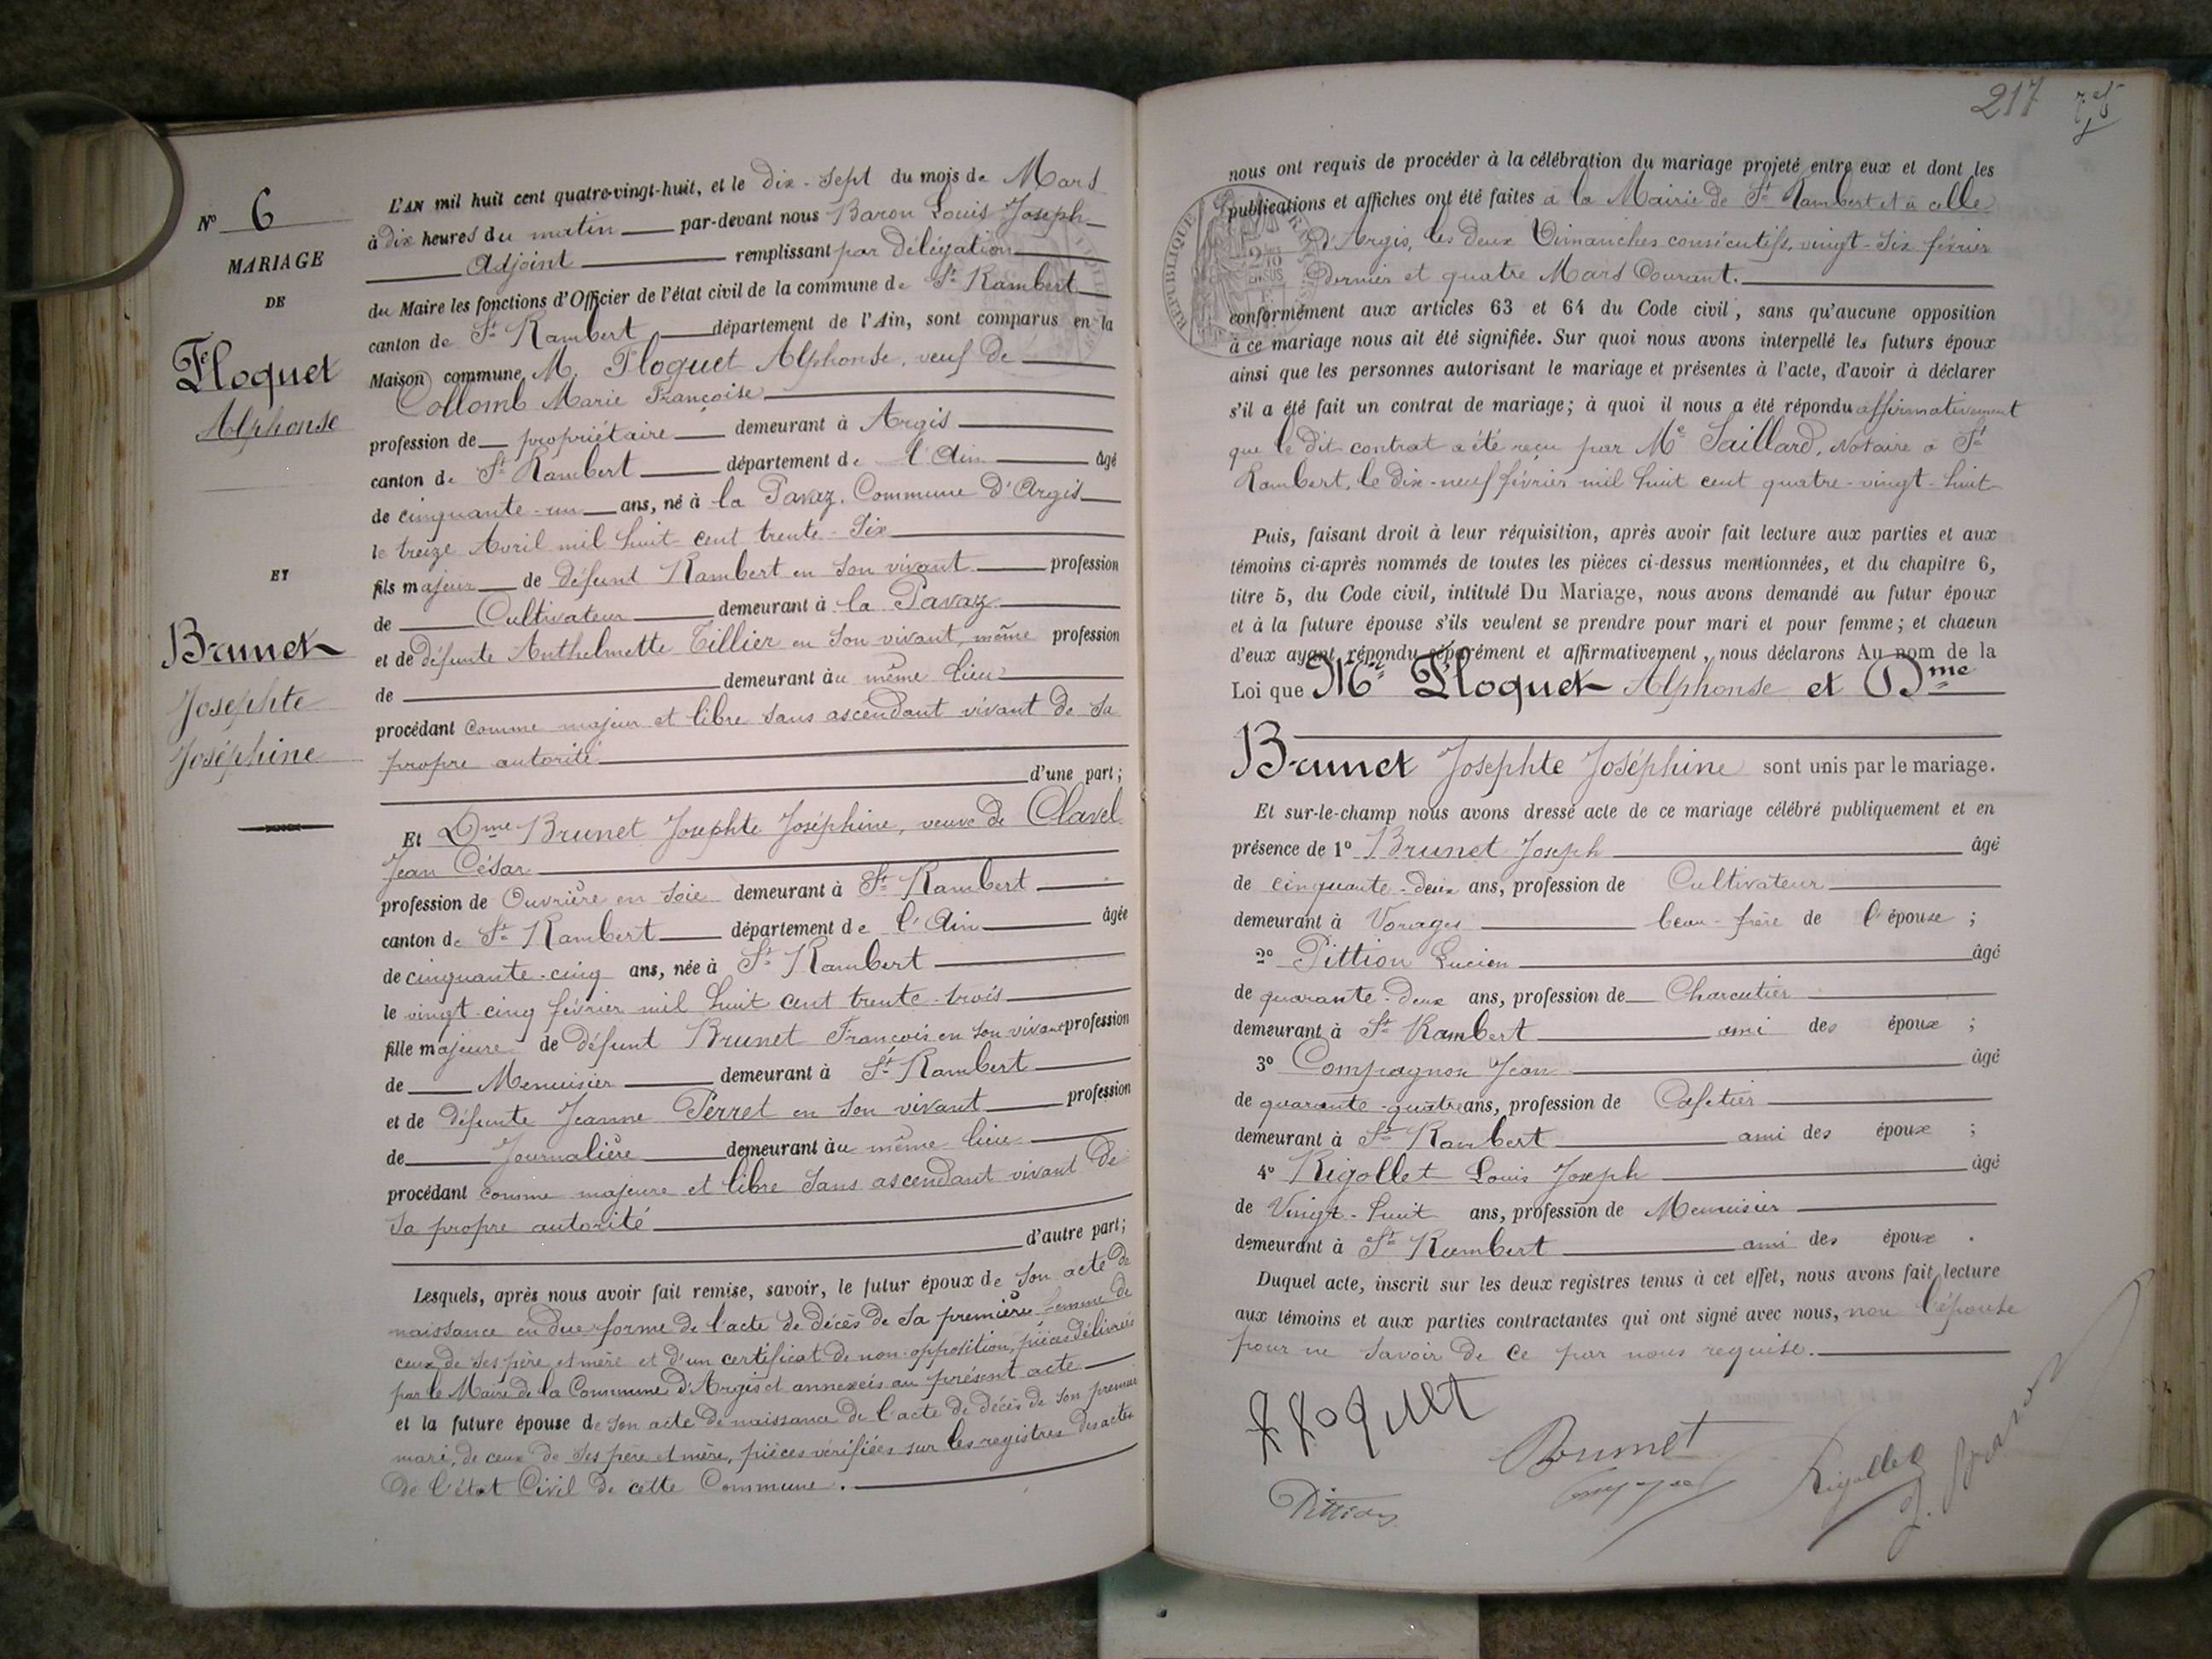 N° 6
MARIAGE
DE
Floquet
Alphonse
ET
Brunet
Josephte
Joséphine
L'AN mil huit cent quatre-vingt-huit, et le dix-sept du mois de Mars
à dix heures du matin par-devant nous Baron Louis Joseph
Adjoint remplissant par délégation
du Maire les fonctions d'Officier de l'état civil de la commune de St Rambert
canton de St Rambert département de l'Ain, sont comparus en la
Maison commune M. Floquet Alphonse, veuf de
Collomb Marie Françoise
profession de propriétaire demeurant à Argis
canton de St Rambert département de l'Ain âgé
de cinquante-un ans, né à la Pavaz, Commune d'Argis
le treize Avril mil huit cent trente-six
fils majeur de défunt Rambert en son vivant profession
de Cultivateur demeurant à la Pavaz
et de défunte Anthelmette Tillier en son vivant, même profession
de demeurant au même lieu
procédant comme majeur et libre sans ascendant vivant de sa
propre autorité
d'une part;
Et Dme Brunet Josephte Joséphine, veuve de Clavel
Jean César
profession de Ouvrière en soie demeurant à St Rambert
canton de St Rambert département de l'Ain âgée
de cinquante-cinq ans, née à St Rambert
le vingt-cinq février mil huit cent trente-trois
fille majeure de défunt Brunet François en son vivant profession
de Menuisier demeurant à St Rambert
et de défunte Jeanne Perret en son vivant profession
de Journalière demeurant au même lieu
procédant comme majeure et libre sans ascendant vivant de
sa propre autorité
d'autre part;
Lesquels, après nous avoir fait remise, savoir, le futur époux de son acte de
naissance en due forme de l'acte de décès de sa première femme de
ceux de ses père et mère et d'un certificat de non-opposition, pièces délivrées
par le Maire de la Commune d'Argis et annexées au présent acte
et la future épouse de son acte de naissance de l'acte de décès de son premier
mari, de ceux de ses père et mère, pièces vérifiées sur les registres des actes
de l'état Civil de cette Commune.
217
nous ont requis de procéder à la célébration du mariage projeté entre eux et dont les
publications et affiches ont été faites à la Mairie de St Rambert et à celle
d'Argis, les deux Dimanches consécutifs, vingt-six février
dernier et quatre Mars Courant.
conformément aux articles 63 et 64 du Code civil, sans qu'aucune opposition
à ce mariage nous ait été signifiée. Sur quoi nous avons interpellé les futurs époux
ainsi que les personnes autorisant le mariage et présentes à l'acte, d'avoir à déclarer
s'il a été fait un contrat de mariage; à quoi il nous a été répondu affirmativement
que le dit contrat a été reçu par Me Saillard, Notaire à St
Rambert, le dix-neuf février mil huit cent quatre-vingt-huit
Puis, faisant droit à leur réquisition, après avoir fait lecture aux parties et aux
témoins ci-après nommés de toutes les pièces ci-dessus mentionnées, et du chapitre 6,
titre 5, du Code civil, intitulé Du Mariage, nous avons demandé au futur époux
et à la future épouse s'ils veulent se prendre pour mari et pour femme; et chacun
d'eux ayant répondu séparément et affirmativement, nous déclarons Au nom de la
Loi que Mr Floquet Alphonse et Dme
Brunet Josephte Joséphine sont unis par le mariage.
Et sur-le-champ nous avons dressé acte de ce mariage célébré publiquement et en
présence de 1° Brunet Joseph âgé
de cinquante-deux ans, profession de Cultivateur
demeurant à Vorages beau-frère de l'épouse;
2° Pittion Lucien âgé
de quarante-deux ans, profession de Charcutier
demeurant à St Rambert ami des époux;
3° Compagnon Jean âgé
de quarante-quatre ans, profession de Cafetier
demeurant à St Rambert ami des époux;
4° Rigollet Louis Joseph âgé
de Vingt-huit ans, profession de Menuisier
demeurant à St Rambert ami des époux.
Duquel acte, inscrit sur les deux registres tenus à cet effet, nous avons fait lecture
aux témoins et aux parties contractantes qui ont signé avec nous, non l'épouse
pour ne savoir de ce par nous requise.
Floquet
Brunet
Rigollet
J. Baron
Pittion